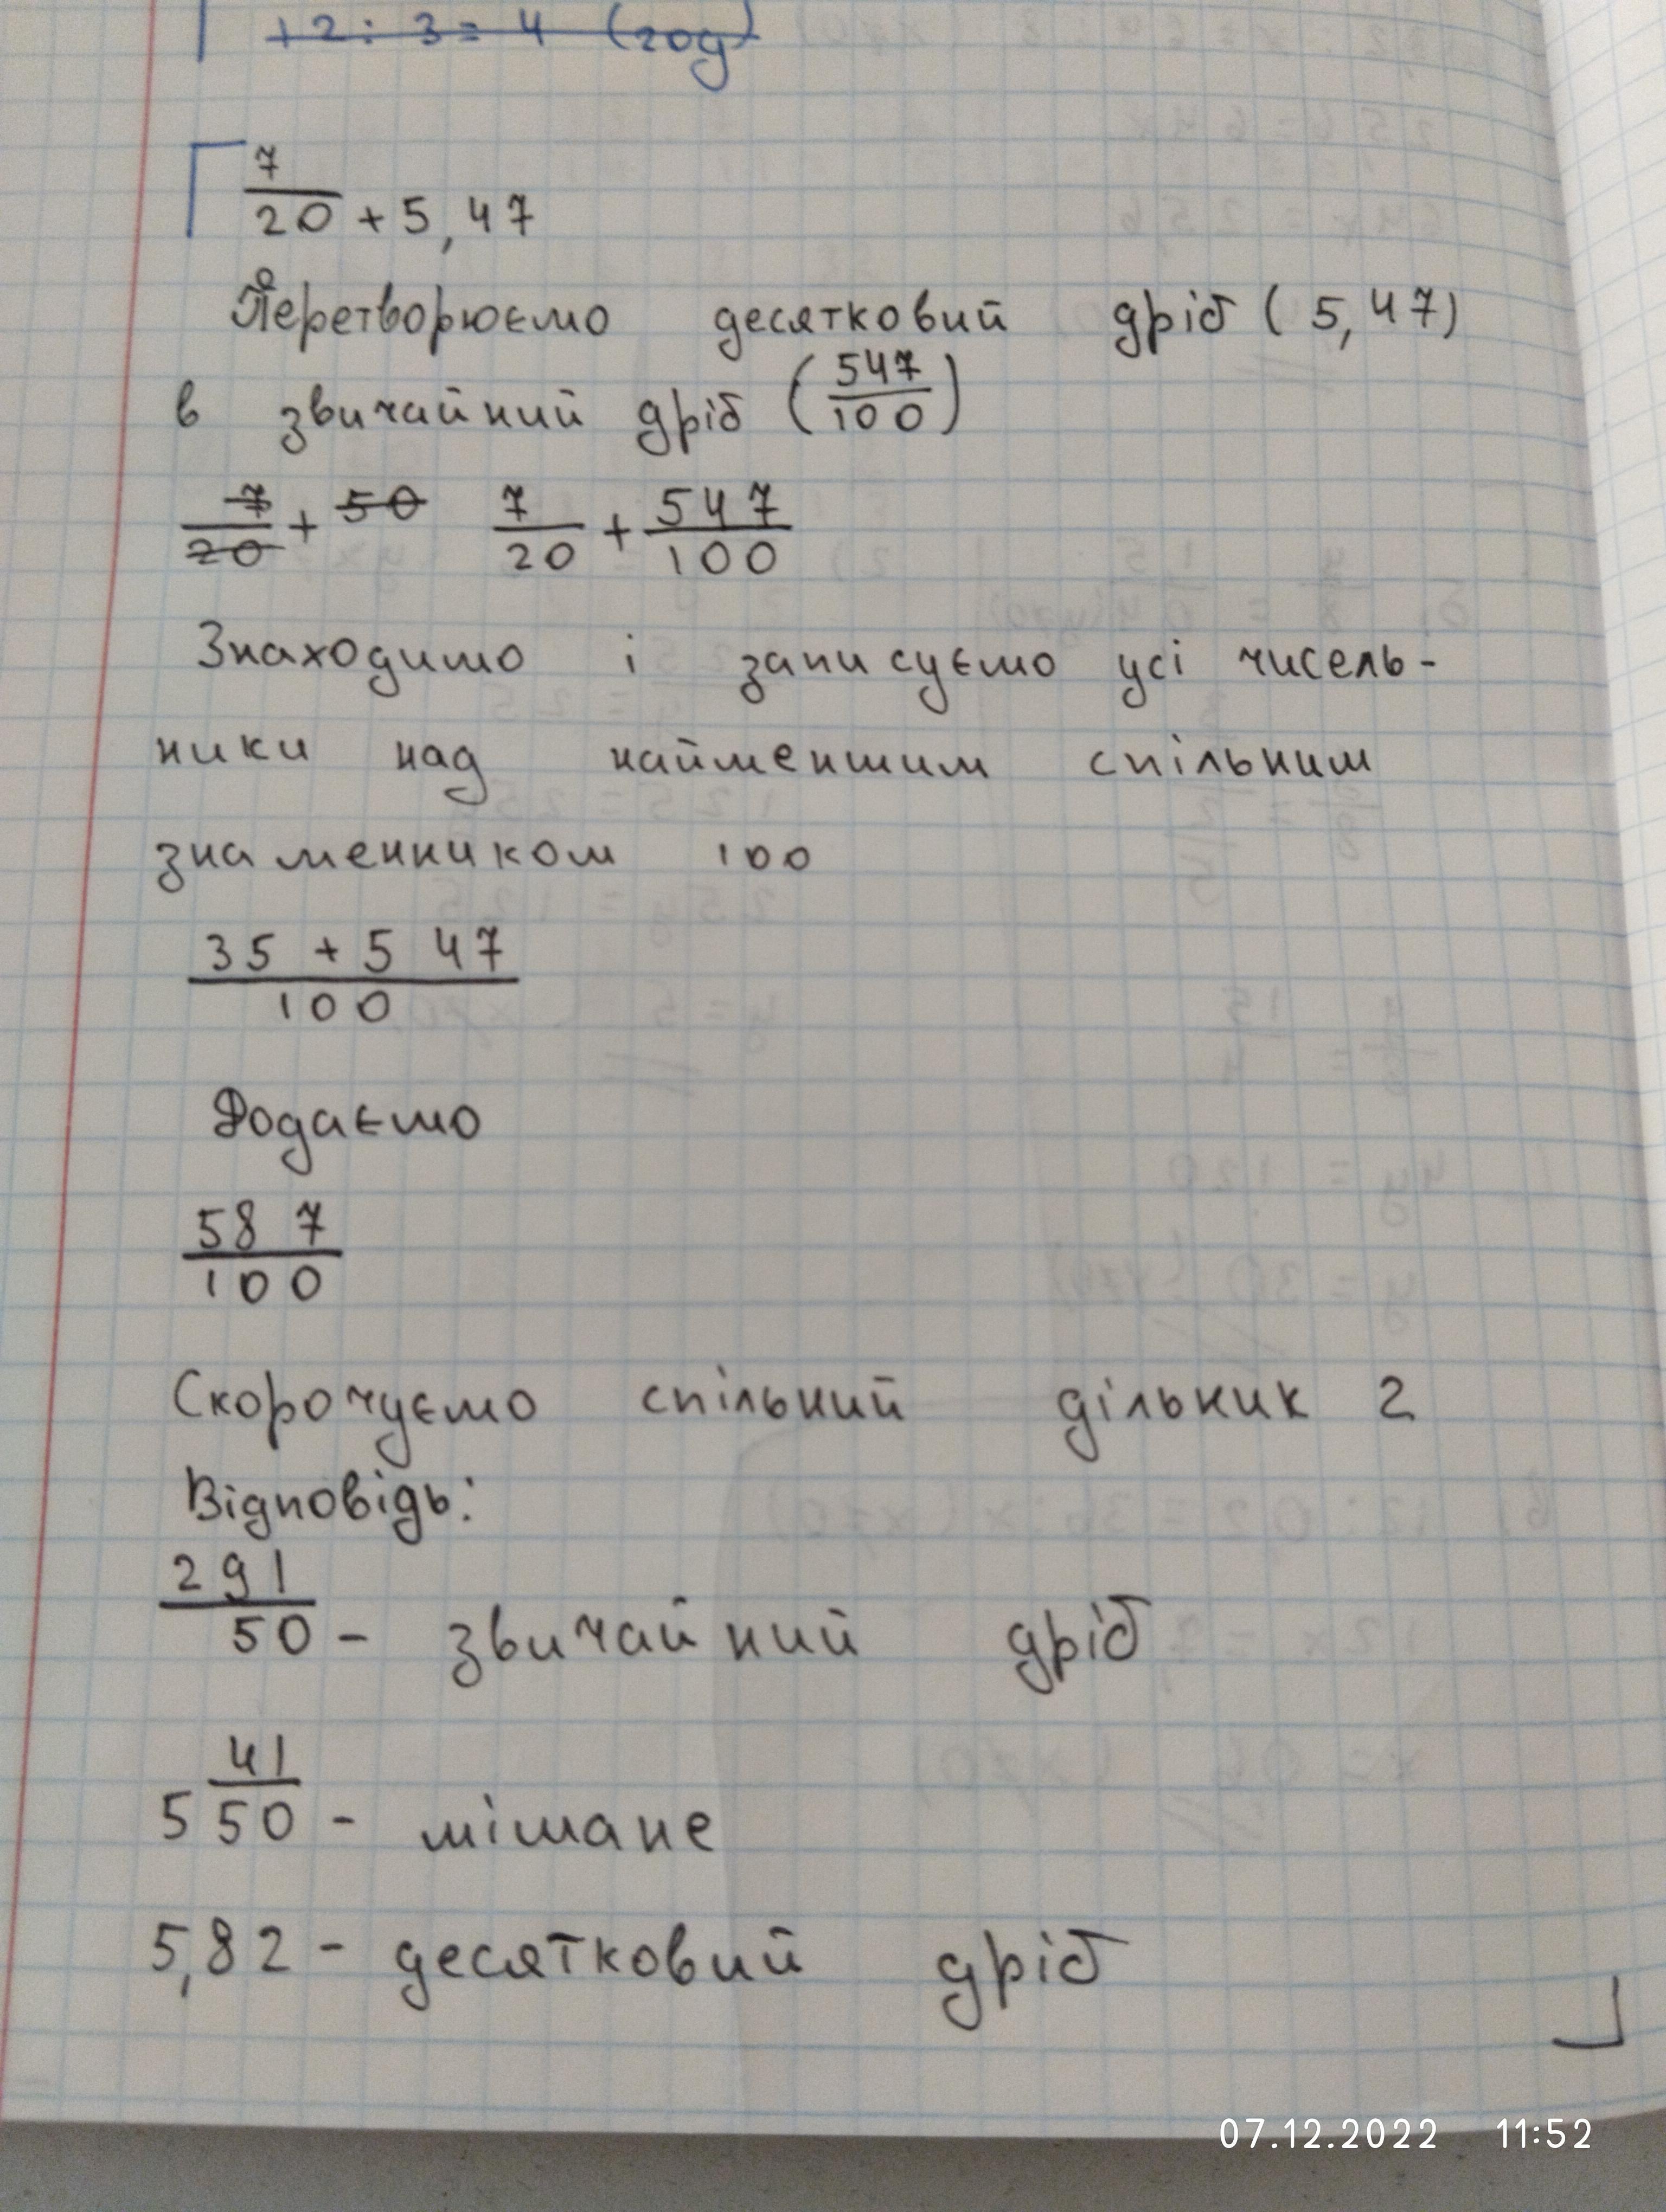 12 : 3 = 4 (год)
7/20 + 5,47
Перетворюємо десятковий дріб (5,47)
в звичайний дріб (547/100)
7/20 + 50 7/20 + 547/100
Знаходимо і записуємо усі чисель-
ники над найменшим спільним
знаменником 100
35 + 547
100
Додаємо
587
100
Скорочуємо спільний дільник 2
Відповідь:
291/50 - звичайний дріб
5 41/50 - мішане
5,82 - десятковий дріб
07.12.2022 11:52